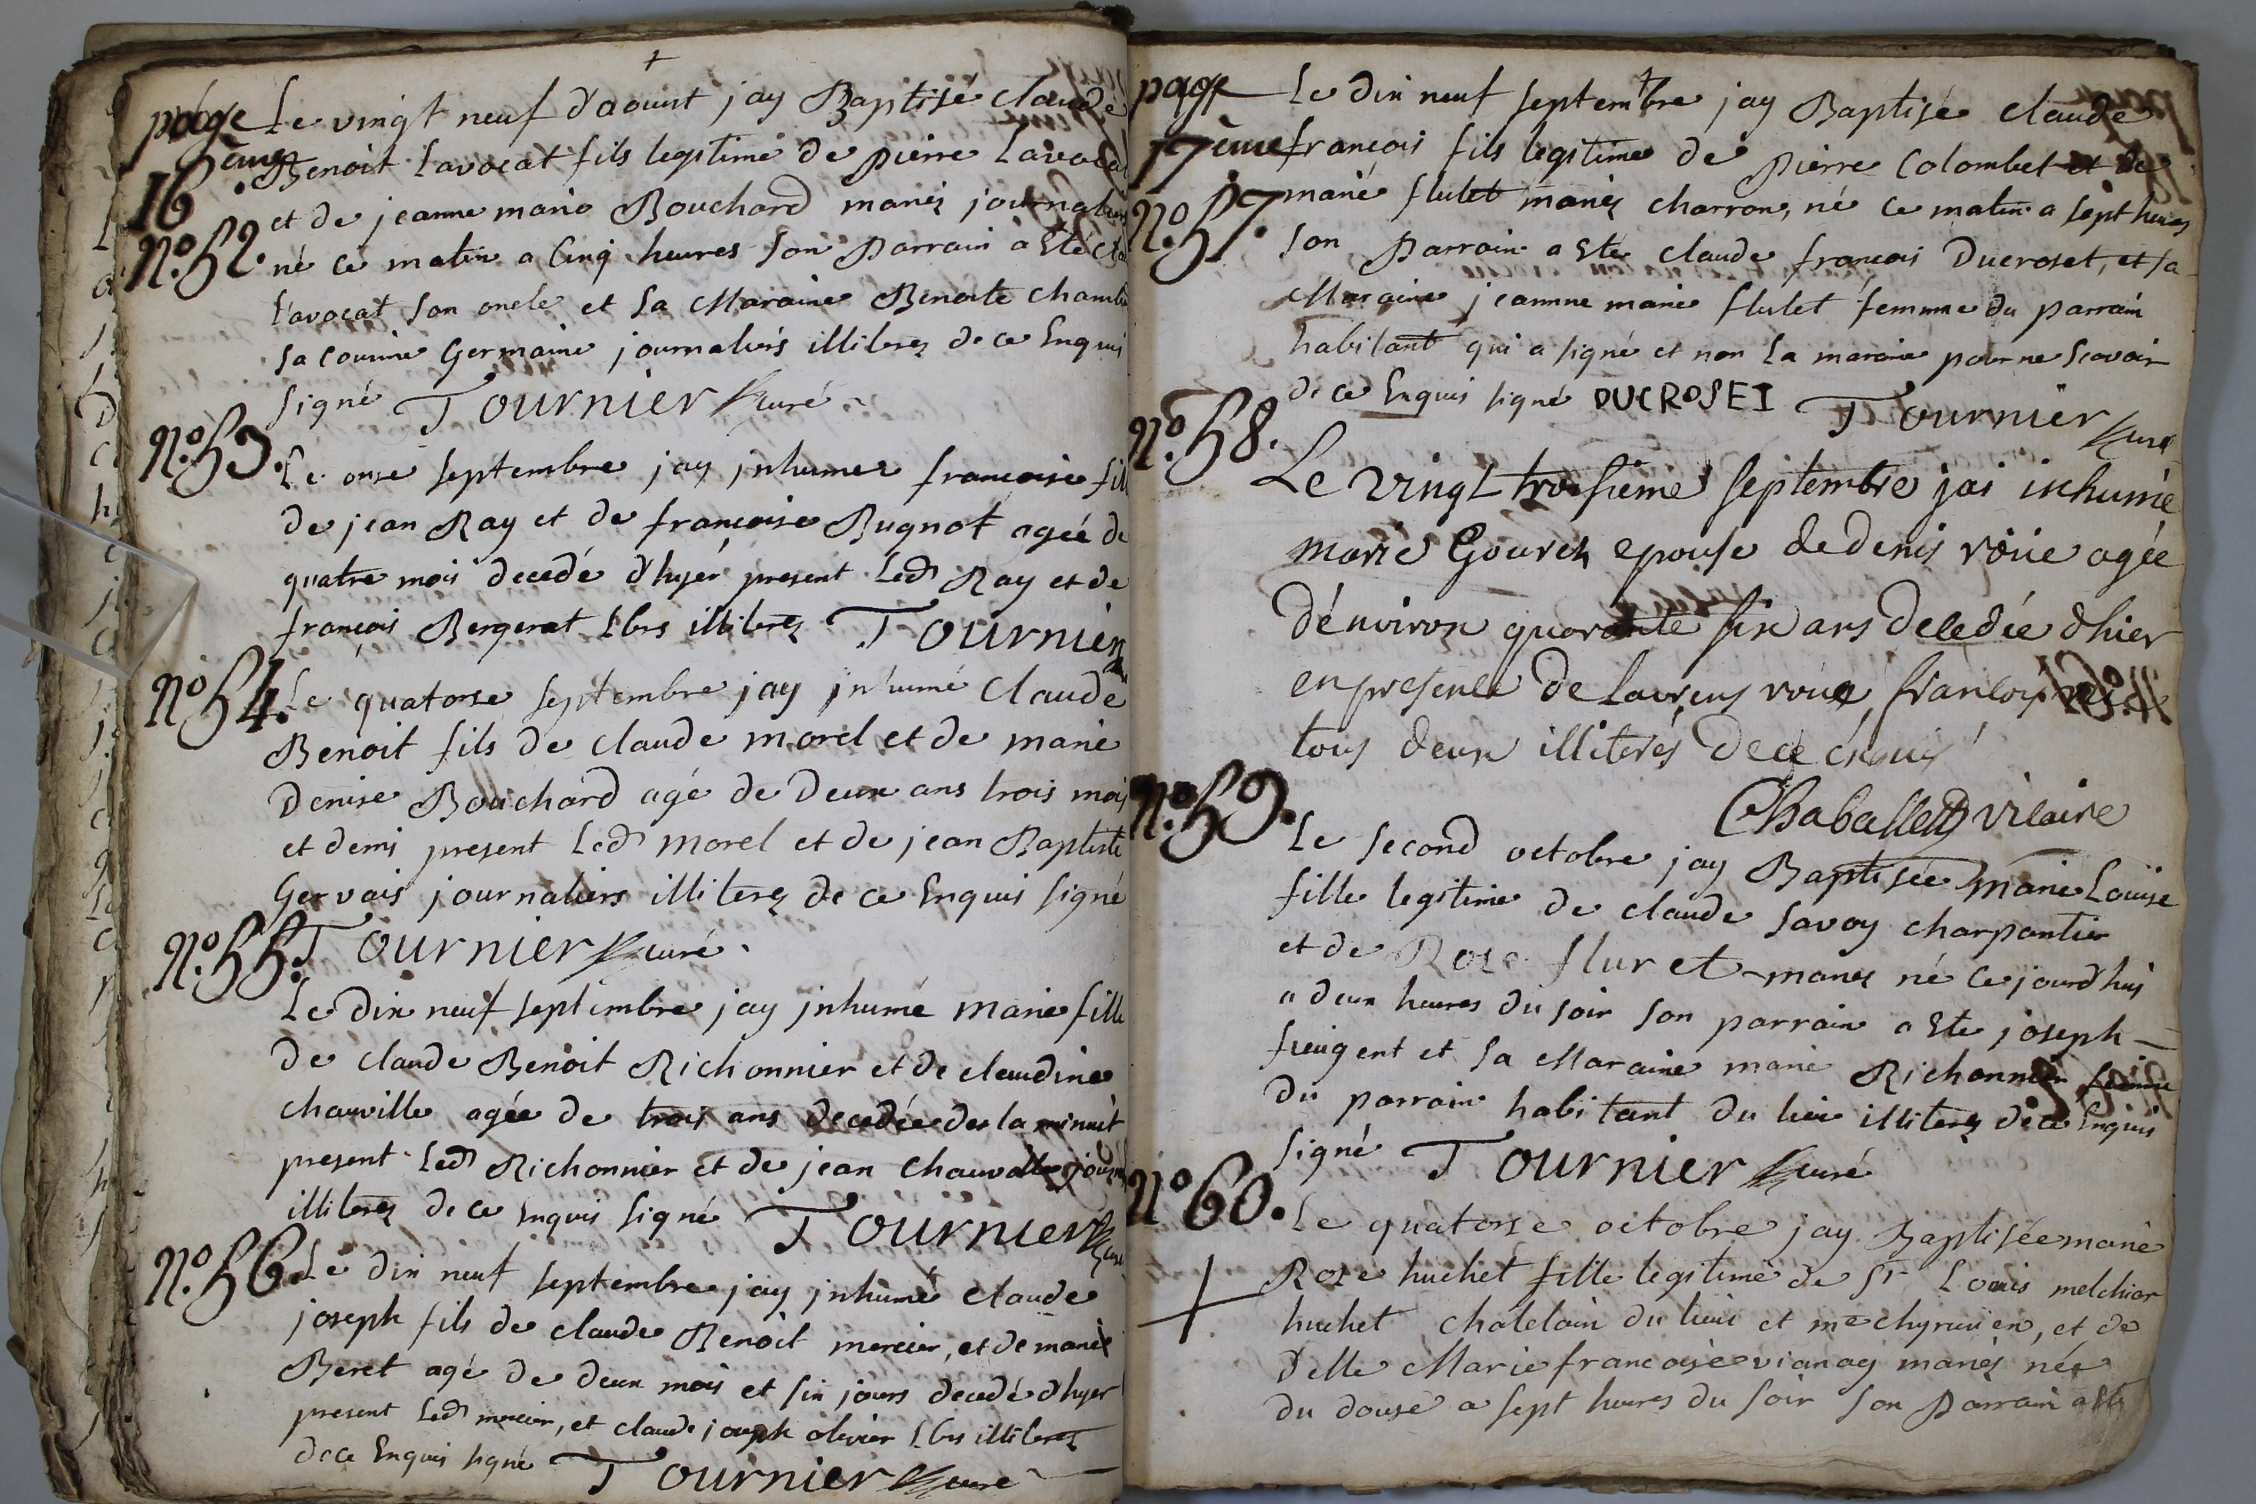 page
16ème
Le vingt neuf d'aoust jay Baptisé claude
Benoit Lavocat fils legitime de pierre Lavocat
N.o 52.
et de jeanne marie Bouchard mariés journaliers
né ce matin a Cinq heures son Parrain a Eté
Lavocat son oncle et sa Maraine Benoite
sa cousine Germaine journaliers illiterez de ce Enquis
signé TOURNIER curé
N.o 53.
Le onse septembre jay jnhumée francoise
de jean Ray et de francoise Bugnot agée de
quatre mois decedé d'hyer present Led Ray et de
francois Bergerat Lbrs illiterez TOURNIER
N.o 54.
Le quatorse septembre jay jnhumé Claude
Benoit fils de claude morel et de marie
Denise Bouchard agé de Deux ans trois mois
et demi present Led morel et de jean Baptiste
Gervais journaliers illiterez de ce Enquis signé
N.o 55.
TOURNIER curé
Le dix neuf septembre jay jnhumé marie fille
de claude Benoit Richonnier et de claudine
chauville agée de trois ans decedée des la minuit
present Led Richonnier et de jean chauville
illiterez de ce Enquis signé TOURNIER
N.o 56.
Le dix neuf septembre jay jnhumé claude
joseph fils de claude Benoit mercier, et de marie
Beret agé de deux mois et six jours decedé d'hyer
present Led mercier, et claude joseph olivier Lbrs illiterez
de ce Enquis signé TOURNIER curé
page
17ème
Le dix neuf septembre jay Baptisé claude
francois fils legitime de pierre Colombet et de
N.o 57.
marie flutet mariés charron, né ce matin a sept heures
son Parrain a Eté claude francois Ducroset, et sa
Maraine jeannne marie flutet femmme du parrain
habitant qui a signé et non la maraine pour ne scavoir
de ce Enquis signé DUCROSET TOURNIER curé
N.o 58.
Le vingt troisieme septembre jai inhumé
marie Gourez epouse de denis roüe agée
d'environ quarante six ans decedée d'hier
en presence de laurens roüe, francois
tous deux illiterés de ce enquis
Chaballet vicaire
N.o 59.
Le second octobre jay Baptisée marie Loüise
fille legitime de claude savoy charpantier
et de Rose fluret mariés né ce jourd'hui
a deux heures du soir son parrain a Eté joseph
fieugent et sa Maraine marie Richonnier femme
du parrain habitant du lieu illiterez de ce Enquis
signé TOURNIER curé
N.o 60.
Le quatorse octobre jay Baptisée marie
Rose huchet fille legitime de Sr Louis melchior
huchet chatelain du lieu et me chyrurien, et de
Delle Marie francoise vianay mariés née
du douse a sept heures du soir son Parrain a Eté